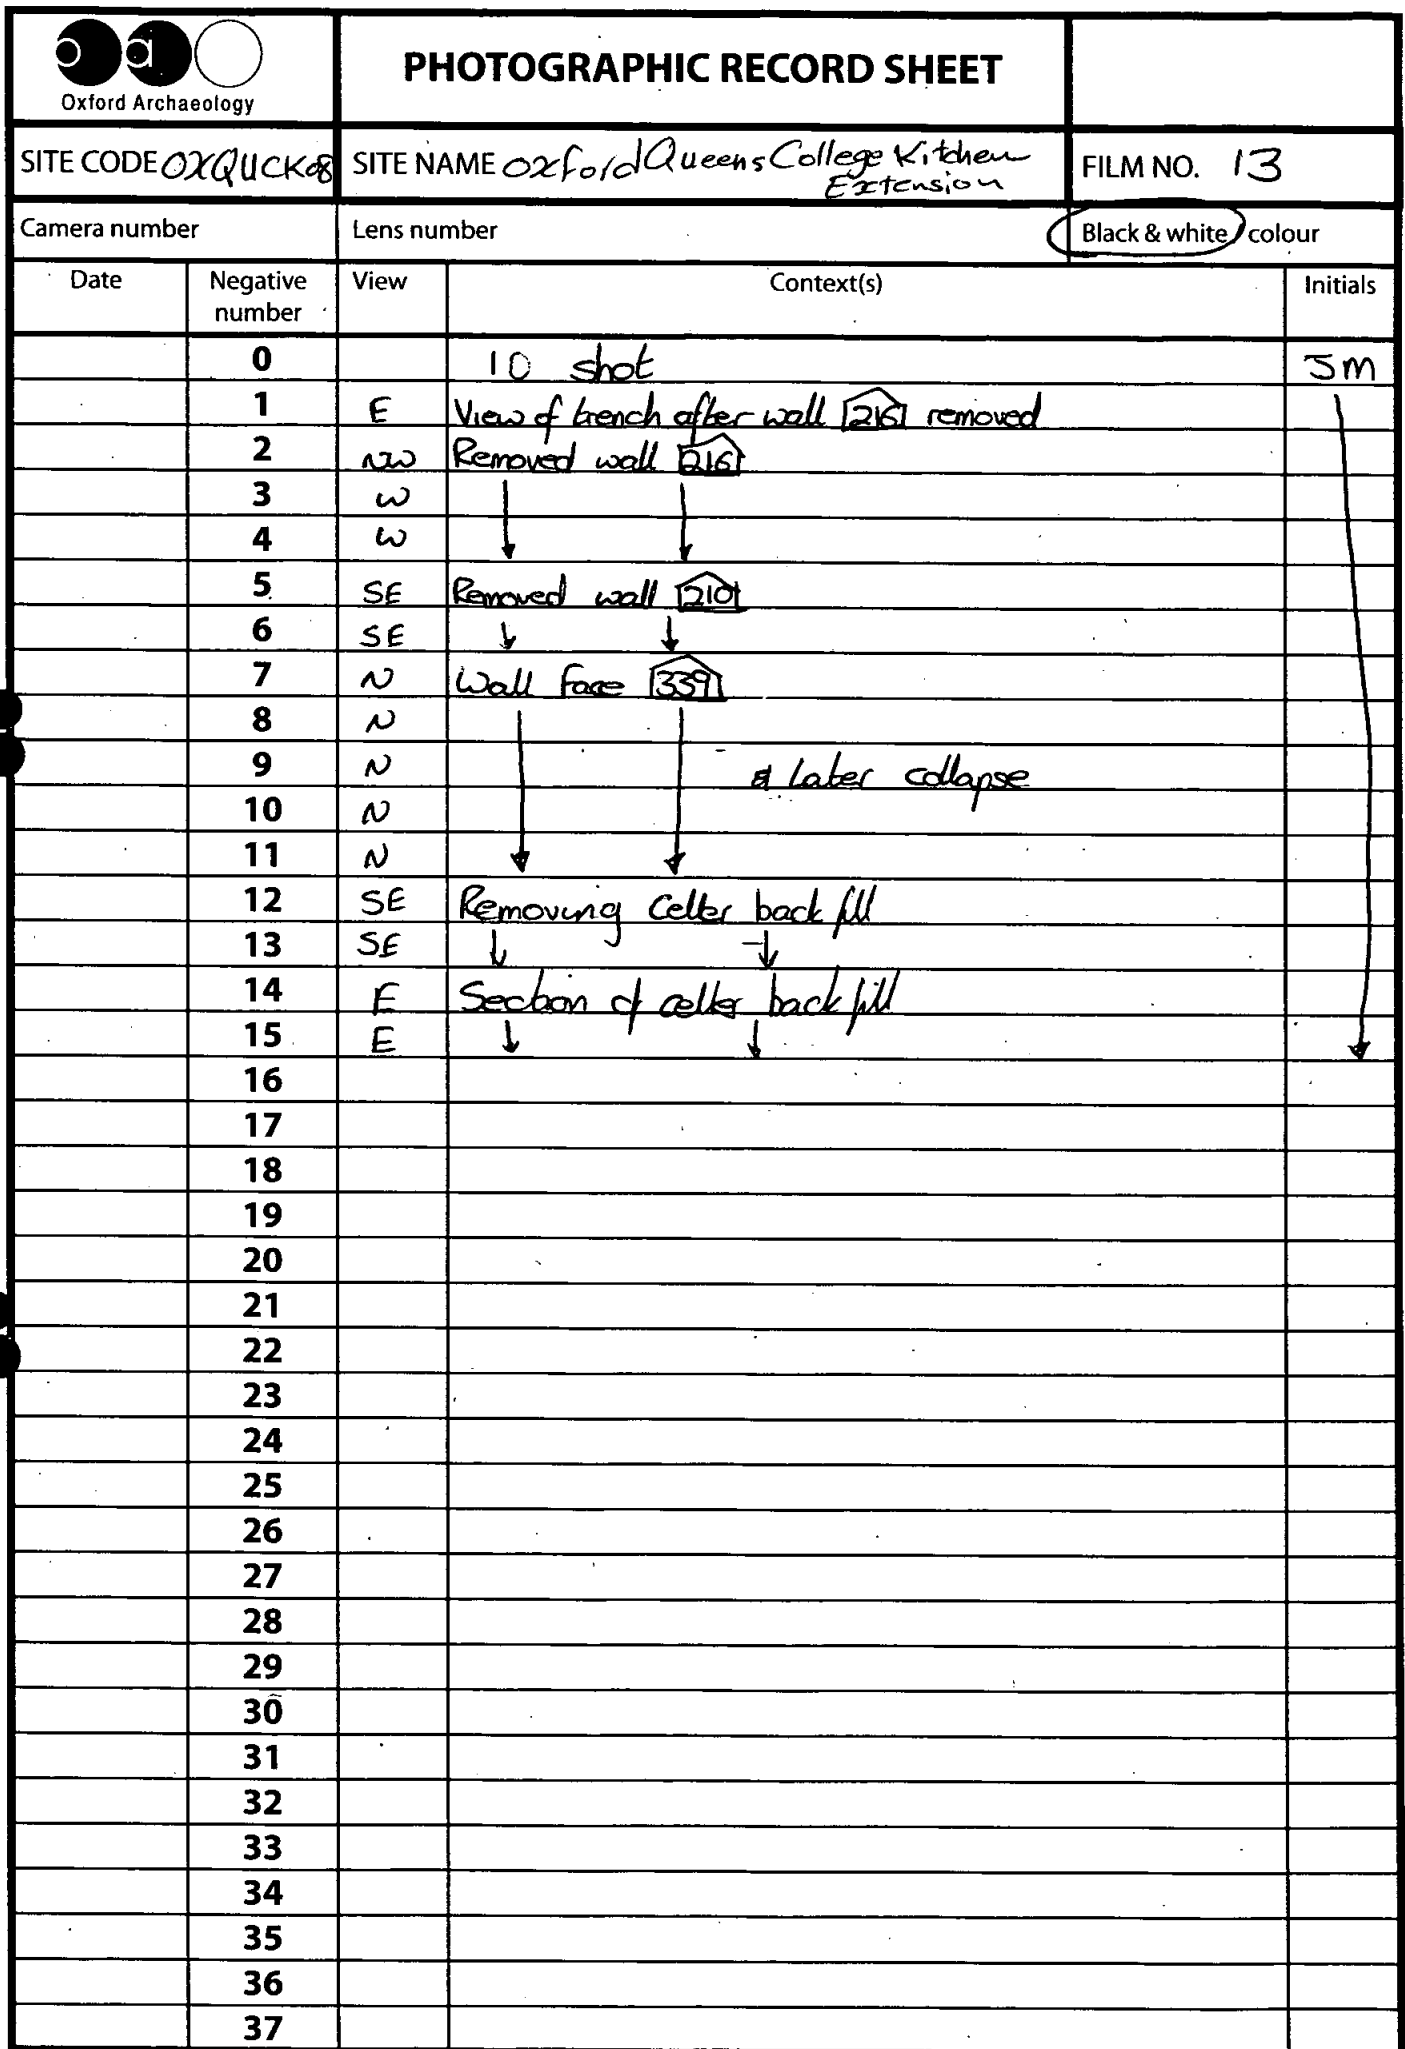 Oxford Archaeology
PHOTOGRAPHIC RECORD SHEET
SITE CODE OXQUCK08
SITE NAME Oxford Queens College Kitchen
Extension
FILM NO. 13
Camera number
Lens number
Black & white / colour
Date
Negative
number
View
Context(s)
Initials
0 ID shot JM
1 E View of trench after wall 216 removed
2 NW Removed wall 216
3 W
4 W
5 SE Removed wall 210
6 SE
7 N Wall face 339
8 N
9 N & Later collapse
10 N
11 N
12 SE Removing Celler back fill
13 SE
14 E Section of celler back fill
15 E
16
17
18
19
20
21
22
23
24
25
26
27
28
29
30
31
32
33
34
35
36
37